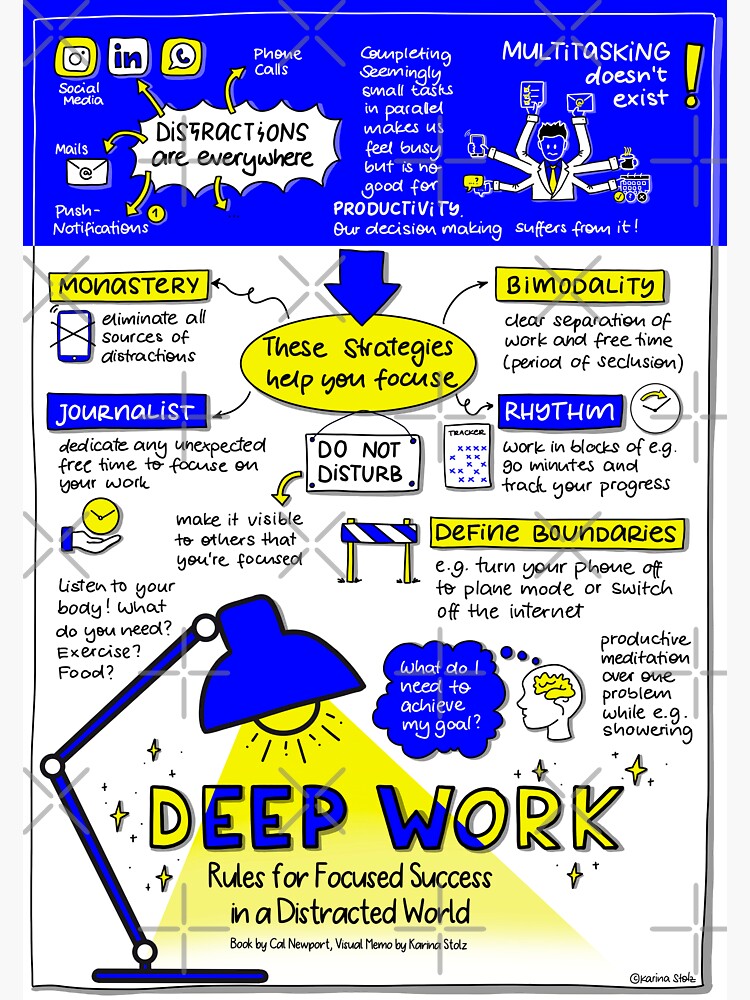 Social
Media
Phone
Calls
DISTRACTIONS
are everywhere
Mails
@
Push-
Notifications
1
Completing
Seemingly
small tasks
in parallel
makes us
feel busy
but is no
good for
PRODUCTIVITY.
Our decision making suffers from it!
MULTITASKING
doesn't
exist
!
...?
These strategies
help you focuse
MONASTERY
eliminate all
sources of
distractions
BIMODALITY
clear separation of
work and free time
(period of seclusion)
JOURNALIST
dedicate any unexpected
free time to focuse on
your work
RHYTHM
TRACKER
work in blocks of e.g.
90 minutes and
track your progress
DO NOT
DISTURB
make it visible
to others that
you're focused
DEFINE BOUNDARIES
e.g. turn your phone off
to plane mode or switch
off the internet
Listen to your
body! What
do you need?
Exercise?
Food?
What do I
need to
achieve
my goal?
productive
meditation
over one
problem
while e.g.
showering
DEEP WORK
Rules for Focused Success
in a Distracted World
Book by Cal Newport, Visual Memo by Karina Stolz
©Karina Stolz